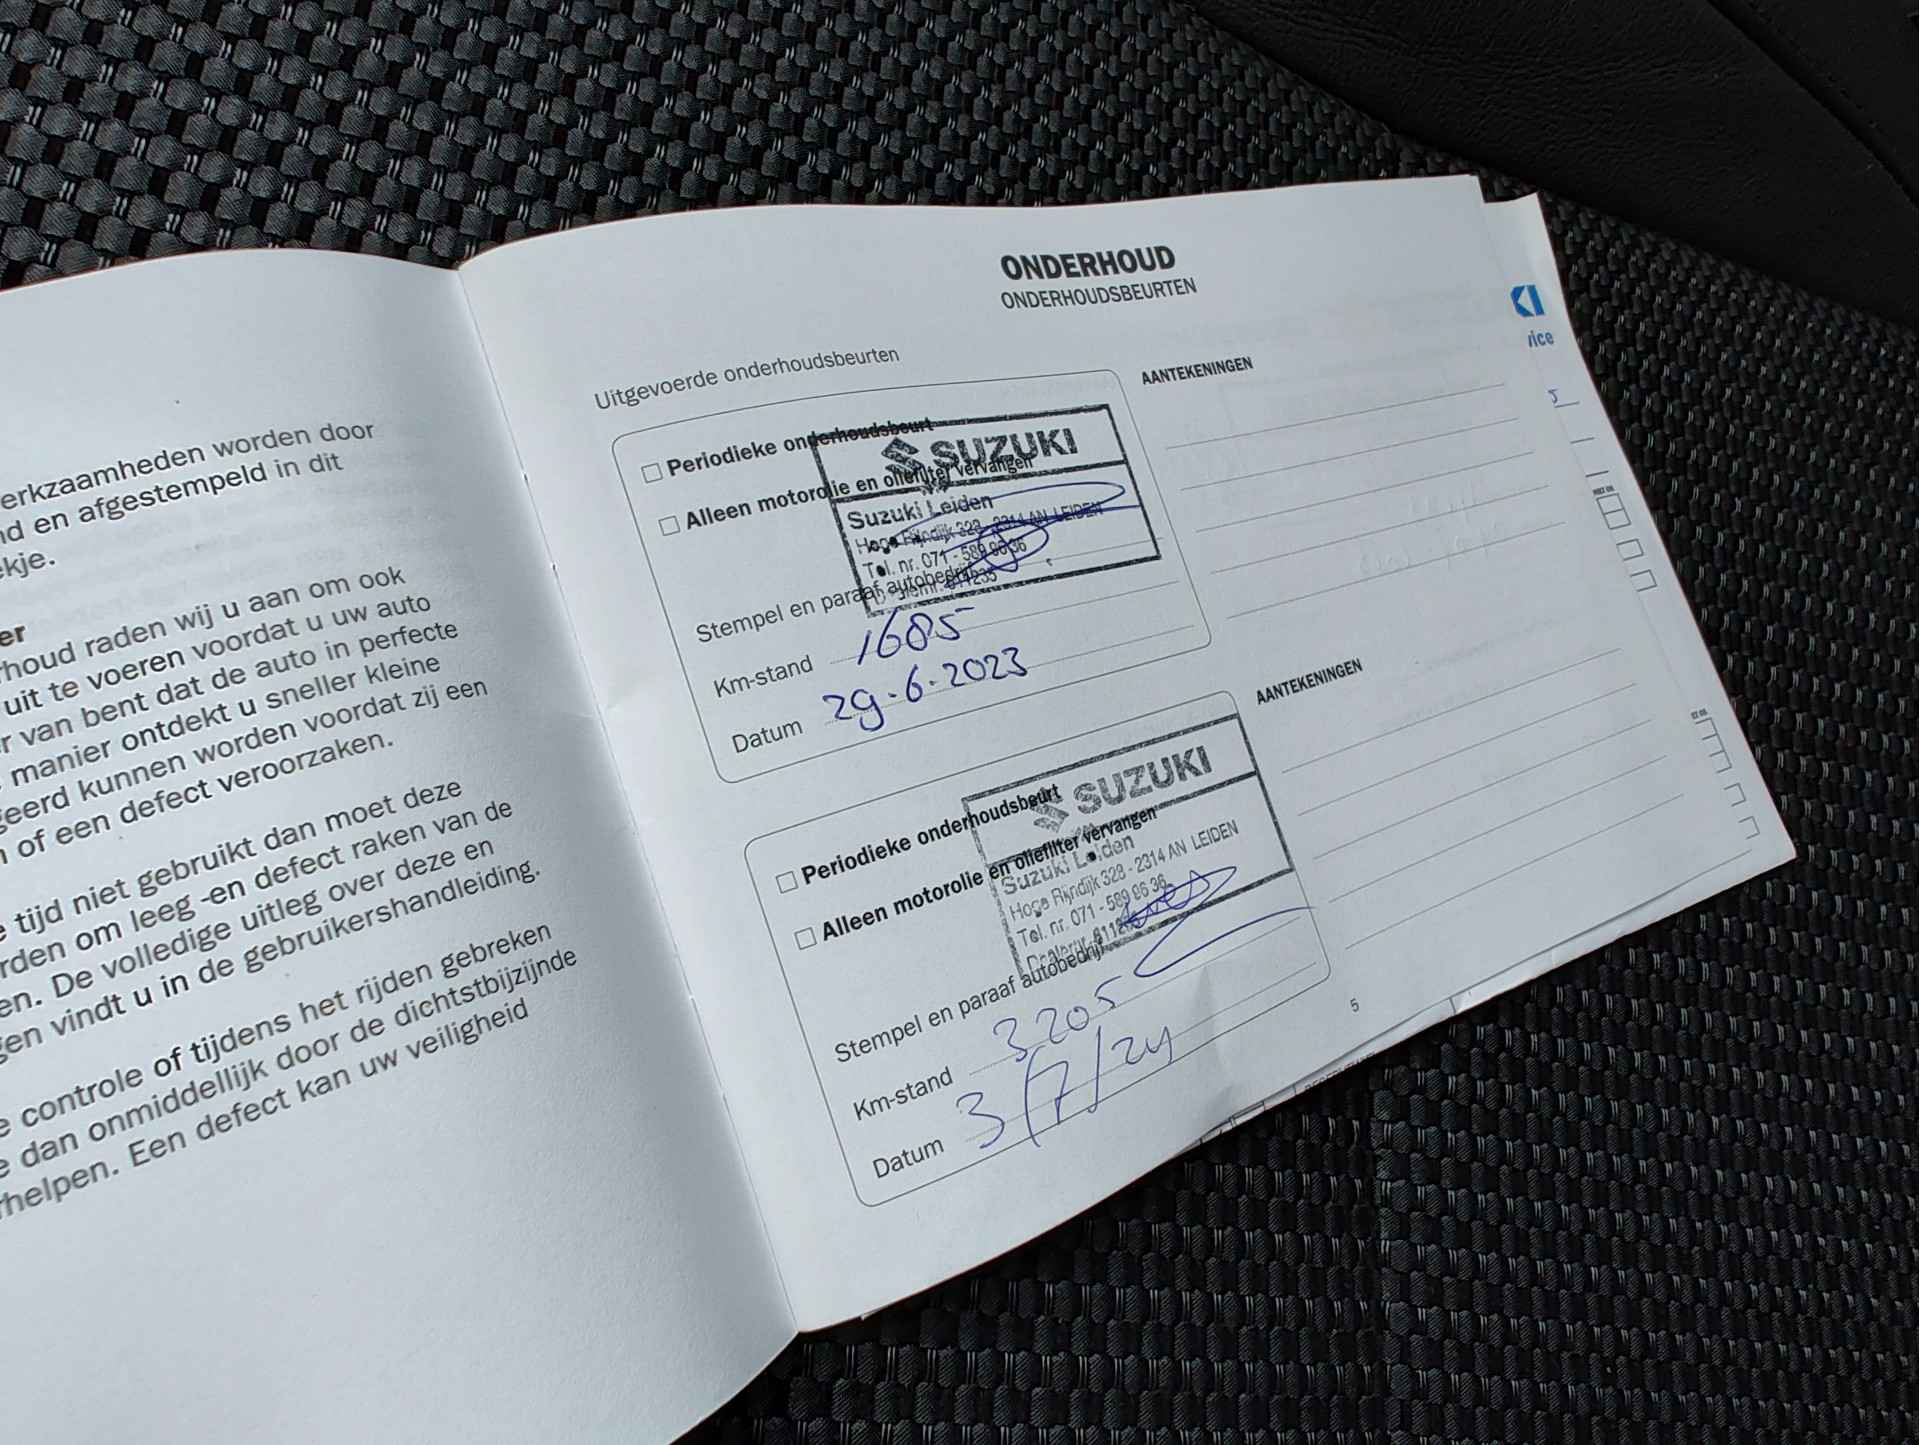 erkzaamheden worden door
nd en afgestempeld in dit
kje.
er
rhoud raden wij u aan om ook
uit te voeren voordat u uw auto
r van bent dat de auto in perfecte
manier ontdekt u sneller kleine
geerd kunnen worden voordat zij een
n of een defect veroorzaken.
e tijd niet gebruikt dan moet deze
rden om leeg -en defect raken van de
en. De volledige uitleg over deze en
gen vindt u in de gebruikershandleiding.
e controle of tijdens het rijden gebreken
e dan onmiddellijk door de dichtstbijzijnde
rhelpen. Een defect kan uw veiligheid
ONDERHOUD
ONDERHOUDSBEURTEN
Uitgevoerde onderhoudsbeurten
AANTEKENINGEN
Periodieke onderhoudsbeurt
Alleen motorolie en oliefilter vervangen
SUZUKI
Suzuki Leiden
Hoge Rijndijk 328 - 2314 AN LEIDEN
Tel. nr. 071 - 589 96 36
Stempel en paraaf autobedrijf
Km-stand 1685
Datum 29-6-2023
AANTEKENINGEN
Periodieke onderhoudsbeurt
Alleen motorolie en oliefilter vervangen
SUZUKI
Suzuki Leiden
Hoge Rijndijk 328 - 2314 AN LEIDEN
Tel. nr. 071 - 589 96 36
Stempel en paraaf autobedrijf
Km-stand 3205
Datum 3/7/24
5
KI
vice